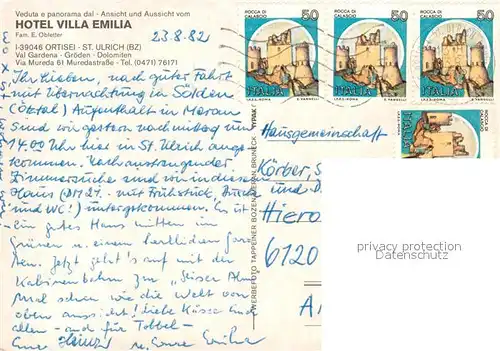 Veduta e panorama dal - Ansicht und Aussicht vom
HOTEL VILLA EMILIA
Fam. E. Obletter
23.8.82
I-39046 ORTISEI - ST. ULRICH (BZ)
Val Gardena - Gröden - Dolomiten
Via Mureda 61 Muredastraße - Tel. (0471) 76171
Ihr Lieben, nach guter Fahrt
mit Übernachtung in Sölden
(Ötztal) Aufenthalt in Meran
sind wir gestern nachmittag um
14.00 Uhr hier in St. Ulrich ange-
kommen. Nach anstrengender
Zimmersuche sind wir in diesem
Haus (DM 27.- mit Frühstück, Dusche
und WC!) untergekommen. Es ist
ein gutes Haus mitten im
Grünen u. einem herrlichen
Jetzt geht's auf mit der
Kabinenbahn zur "Seiser Alm"
Mal sehen wie die Welt von
oben aussieht! Liebe Grüße Euch
allen - auch für
Eure Heinz u. Eure
WERBEFOTO TAPPEINER BOZEN
ROCCA DI CALASCIO
50
ITALIA
I.P.Z.S. ROMA E. VANGELLI
ROCCA DI CALASCIO
50
ITALIA
I.P.Z.S. ROMA E. VANGELLI
ROCCA DI CALASCIO
50
ITALIA
I.P.Z.S. ROMA E. VANGELLI
ITALIA
Hausgemeinschaft
Körber, S
und D
Hiero
6120
privacy protection
Datenschutz